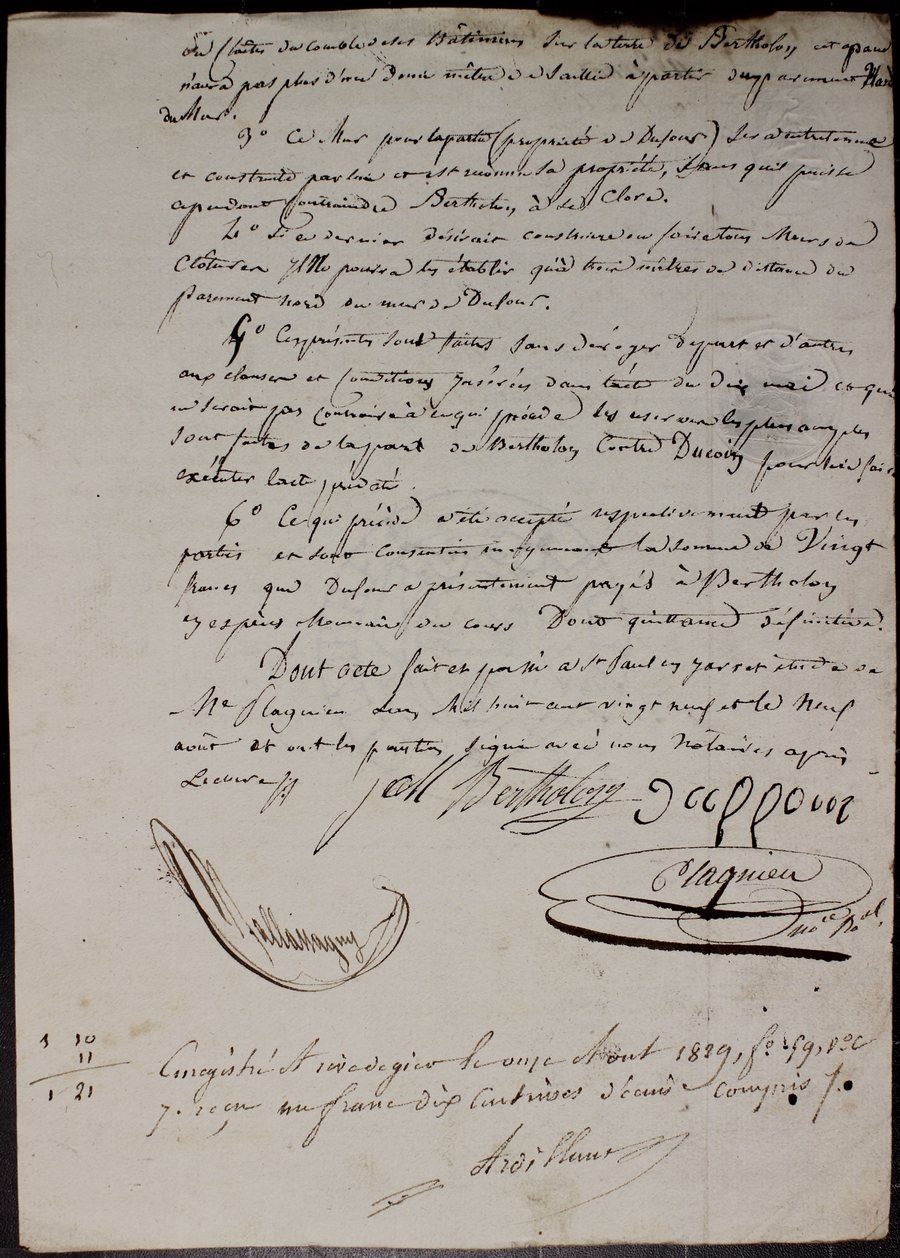 du comble de ses Bâtimens sur la terre de Bertholon et quand
n'aura pas plus d'un demi mêtre de Saillie à partir du parement Nord
du Mur.
3.o Ce Mur pour la partie (propriété de Dufour) Sera entretenue
et construite par lui et est reconnu sa propriété, sans qu'il puisse
cependant contraindre Bertholon à se Clore.
4.o Si ce dernier désirait construire ou faire tous Murs de
Cloture il ne pourra les établir qu'à trois mêtres de distance du
parement Nord du mur de Dufour.
5.o Ces présentes sont faites sans déroger de part et d'autres
aux clauses et Conditions insérées dans l'acte du dix mai et qui
ne serait pas Contraire à ce qui précède les reserves les plus amples
sont faites de la part de Bertholon Contre Ducoin pour lui faire
exécuter l'acte prédaté.
6.o Ce qui précède a été accepté respectivement par les
parties et sont Consenties moyennant la somme de Vingt
francs que Dufour a présentement payés à Bertholon
en espèces Monnaie du cours Dont quittance définitive.
Dont acte fait et passé a St Paul en Jarret étude de
Me Plagnieu L'an Mil huit cent vingt neuf et le Neuf
août et ont les parties signé avec nous Notaires après
Lecture
Bertholon
Plagnieu
Enregistré A rivedegier le onze Aout 1829, fo 59, Ro C
7. reçu un franc dix Centimes décime compris
1 10
11
1 21